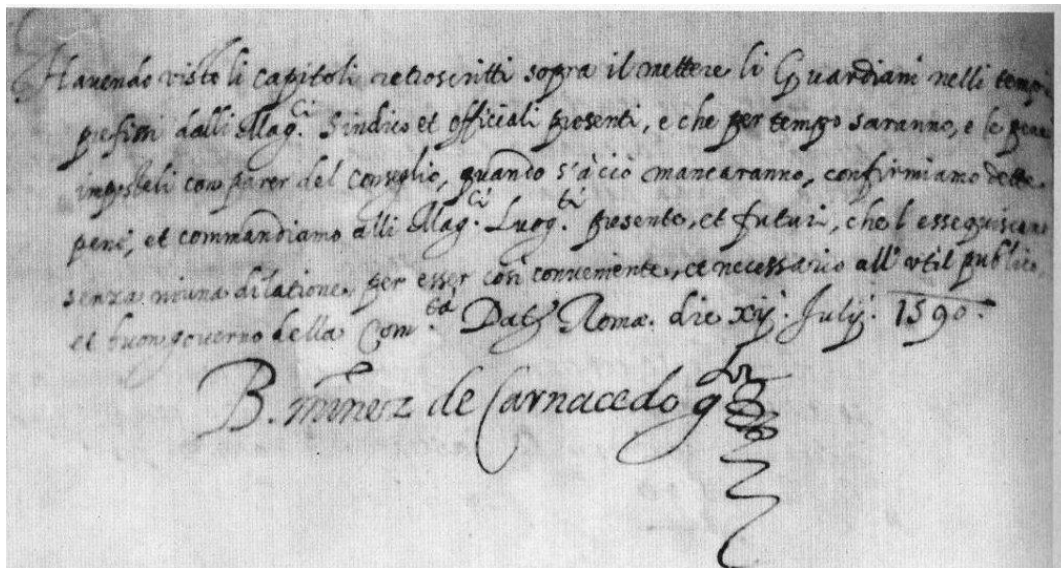 Havendo visto li capitoli retroscritti sopra il mettere li Guardiani nelli tempi
prefissi dalli Mag.ci Sindico et officiali presenti, e che per tempo saranno, e le pene
impostali con parer del Conseglio, quando s'à ciò mancaranno, confirmiamo dette
pene, et commandiamo alli Mag.ci Luog.ti presente, et futuri, che l'essequiscano
senza niuna dilatione, per esser così conveniente, et necessario all'util publico,
et buon governo della Com.tà Dat Romæ. die xij. Julij. 1590.
B. de Carnacedo